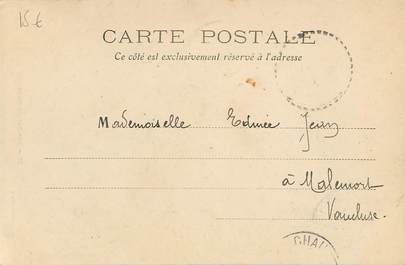 15€
CARTE POSTALE
Ce côté est exclusivement réservé à l'adresse
Mademoiselle Edmée Jean
à Malemort
Vaucluse.